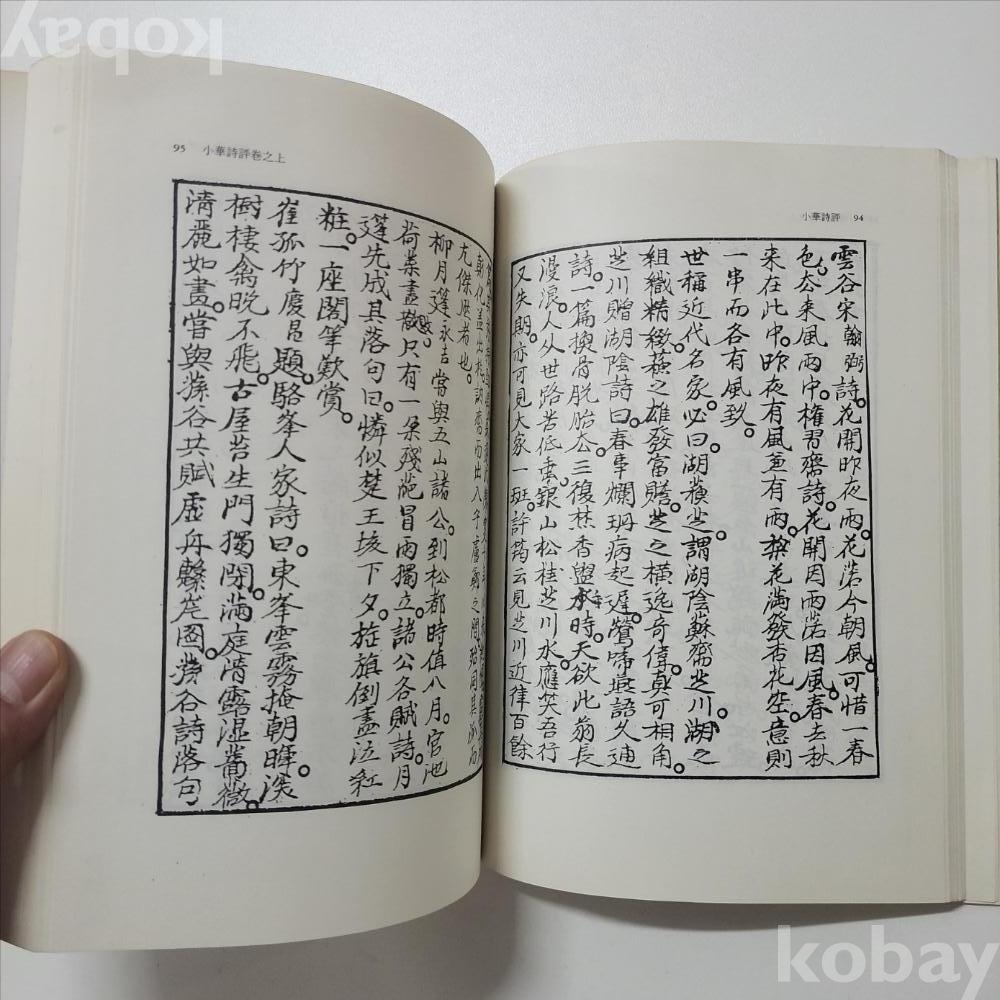 小華詩評 94
雲谷宋翰弼詩。花開昨夜雨。花落今朝風。可惜一春
色。去來風雨中。權習齋詩。花開因雨落因風。春去秋
來在此中。昨夜有風兼有雨。梨花滿發杏花空。意則
一串而各有風致。
世稱近代名家。必曰湖蘇芝。謂湖陰蘇齋芝川。湖之
組織精緻。蘇之雄發富贍。芝之橫逸奇偉。真可相角。
芝川贈湖陰詩曰。春事爛珊病起遲。鶯啼燕語久逋
詩。一篇換骨脫胎去。三復焚香盥手時。天欲此翁長
漫浪。人從世路苦低垂。銀山松桂芝川水。應笑吾行
又失期。亦可見大家一斑。許筠云見芝川近律百餘
95 小華詩評卷之上
尤傑歷者也。
柳月篷永吉嘗與五山諸公。到松都。時值八月。官池
荷葉盡敗。只有一朶殘葩冒雨獨立。諸公各賦詩。月
篷先成其落句曰。憐似楚王垓下夕。旌旗倒盡泣紅
粧。一座閣筆歎賞。
崔孤竹慶昌題駱峯人家詩曰。東峯雲霧掩朝暉。深
樹棲禽晚不飛。古屋苔生門獨閉。滿庭清露濕薔薇。
清麗如畫。嘗與蓀谷共賦虛舟繫岸圖。蓀谷詩落句
kobay
kobay